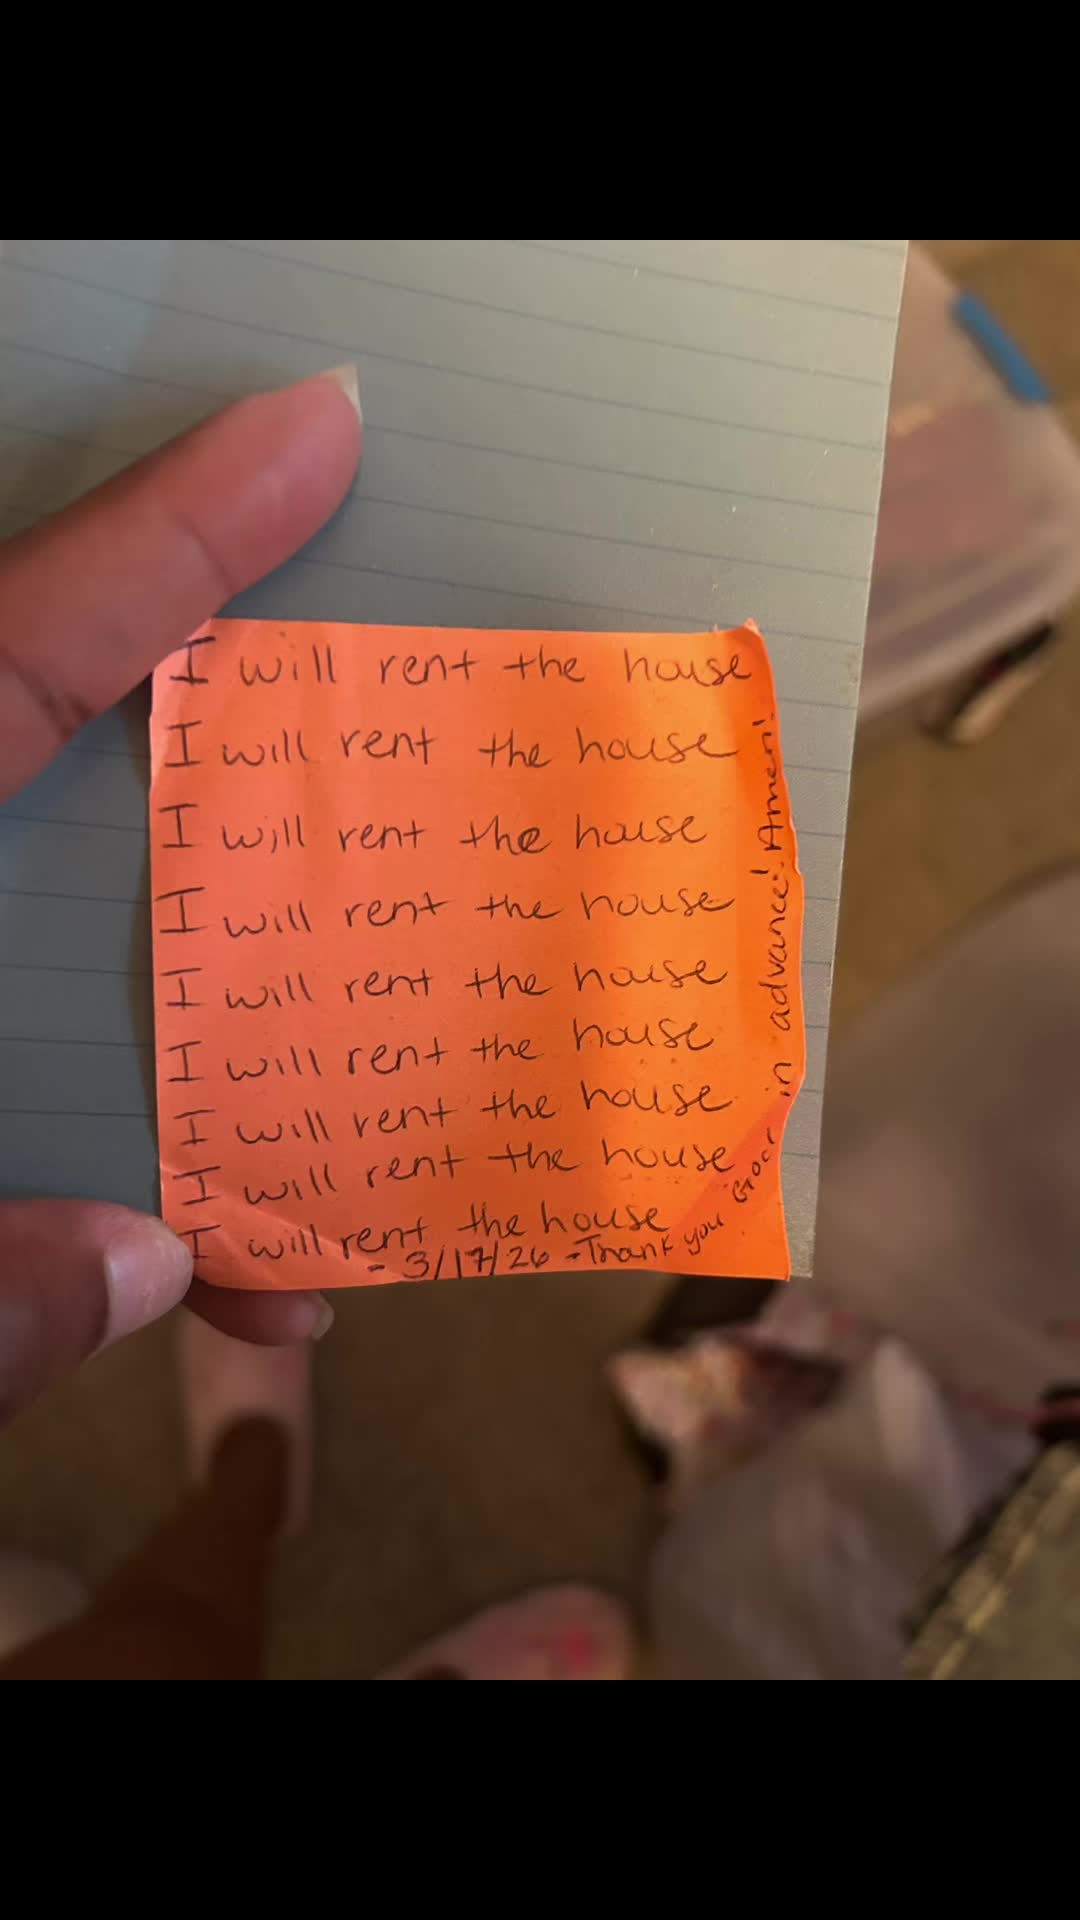 I will rent the house
I will rent the house
I will rent the house
I will rent the house
I will rent the house
I will rent the house
I will rent the house
I will rent the house
I will rent the house
- 3/17/26 - Thank you God in advance! Amen!